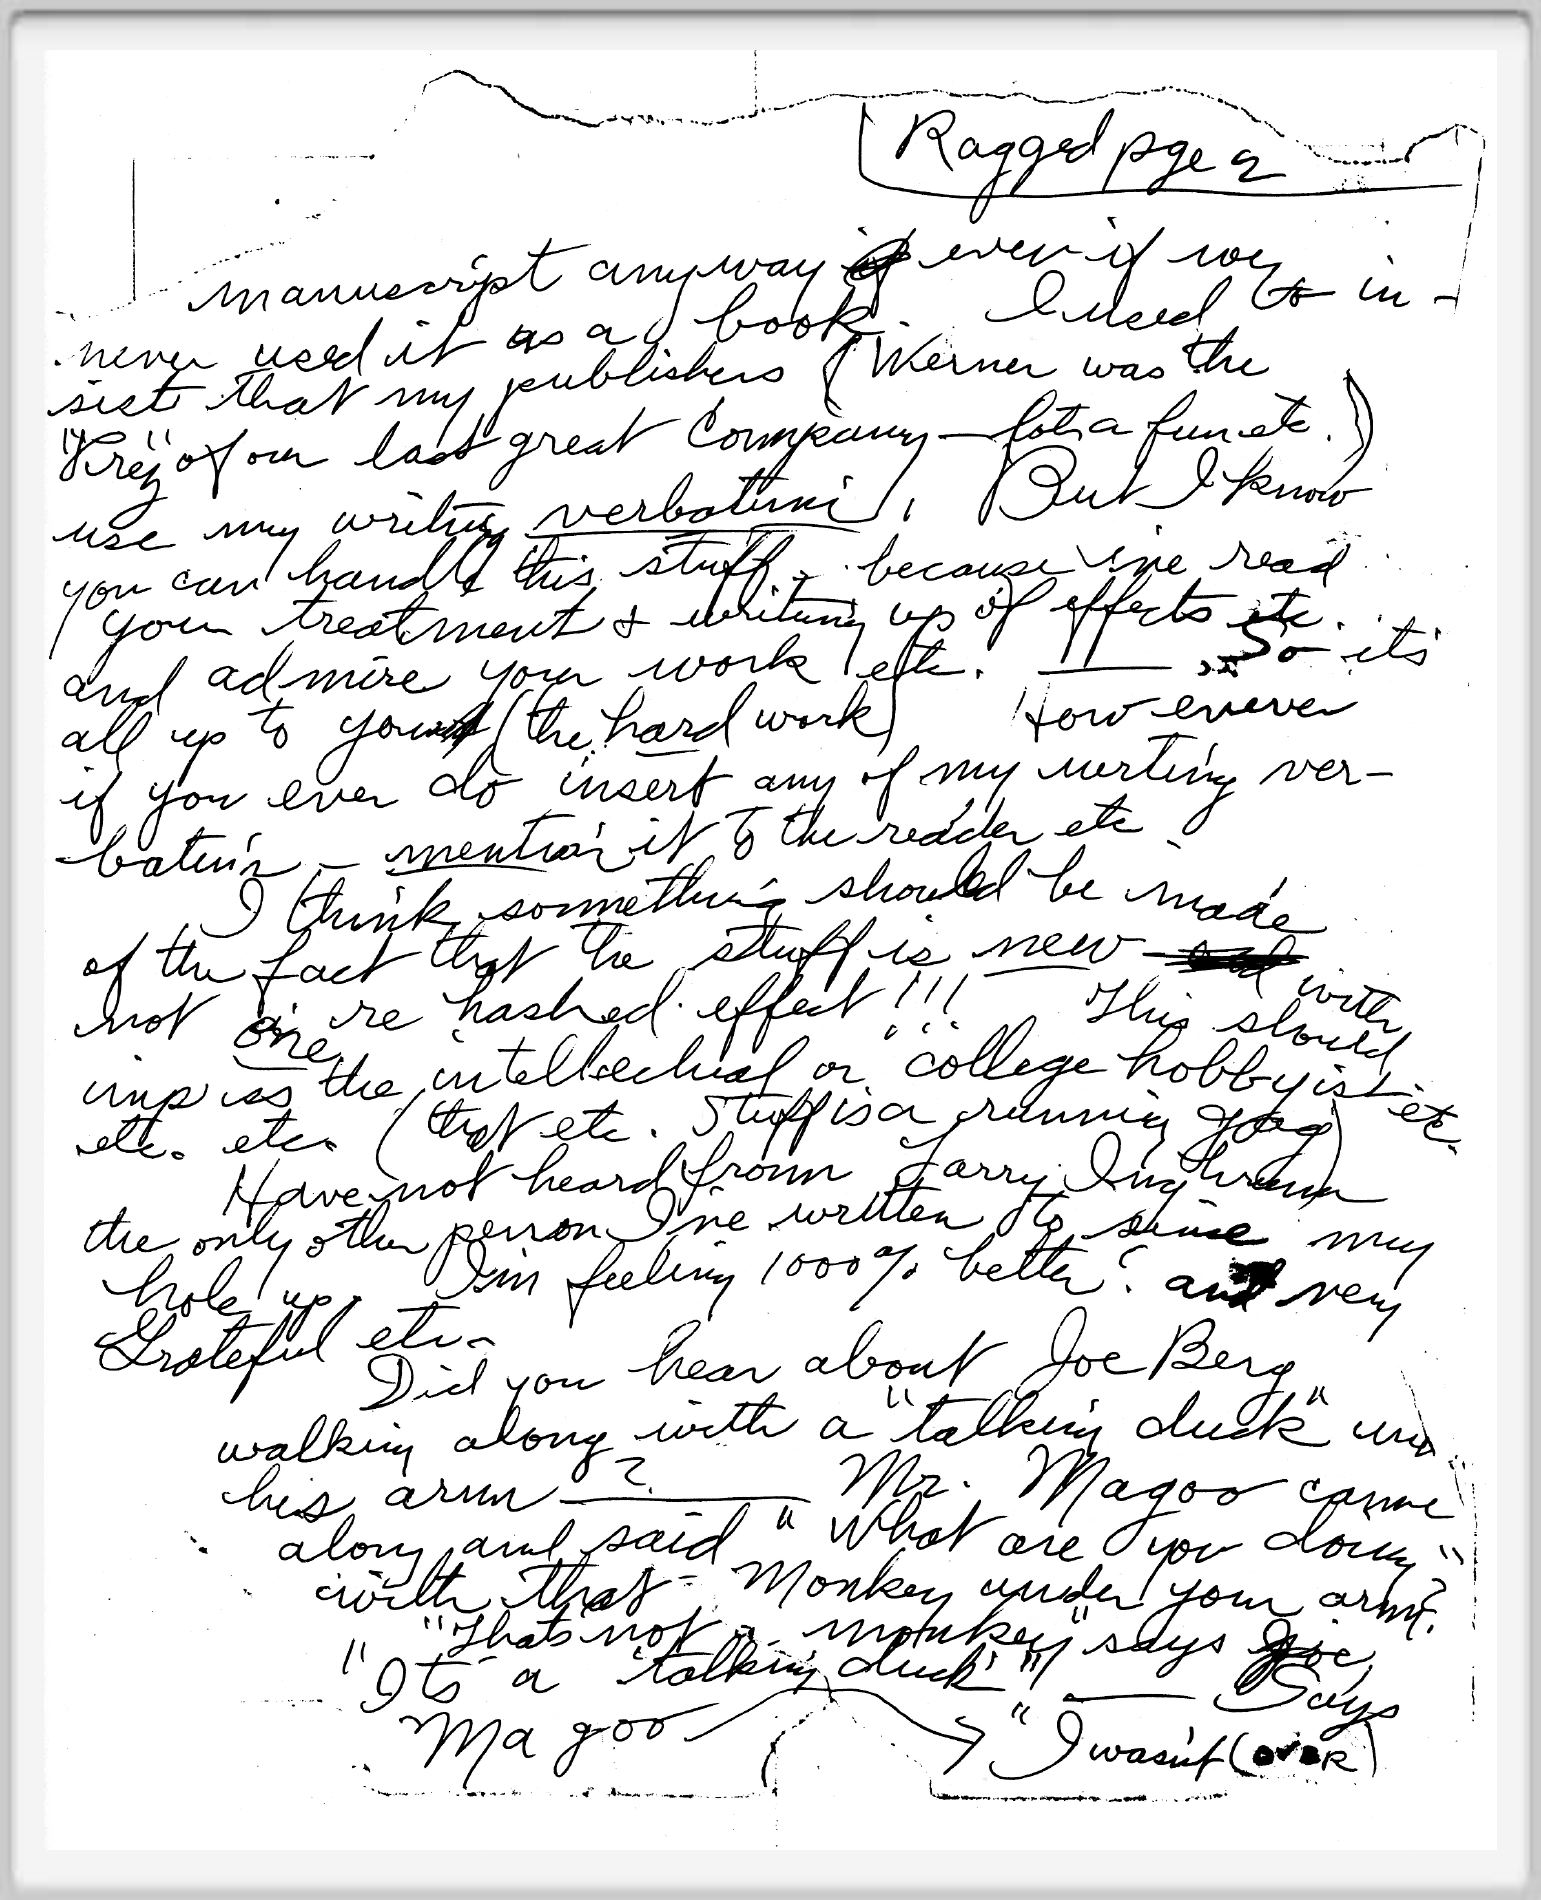 Ragged pge 2
manuscript anyway even if we
never used it as a book. I used to in-
sist that my publishers (Werner was the
"Prez" of our last great Company — lotsa fun etc.)
use my writing verbatum. But I know
you can handle this stuff, because ive read
your treatment & writing up of effects etc.
and admire your work etc. — So its
all up to you (the hard work) However
if you ever do insert any of my writing ver-
batum — mention it to the reader etc
I think something should be made
of the fact that the stuff is new with
not one re hashed effect!!! This should
impress the intellectual or college hobbyist etc.
etc. etc. (that etc. stuff is a running gag)
Have not heard from Larry Inghram
the only other person I've written to since my
hole up. I'm feeling 1000% better and very
Grateful etc.
Did you hear about Joe Berg
walking along with a "talking duck" un
his arm —? Mr. Magoo came
along and said "What are you doing"
with that Monkey under your arm?
"Thats not a monkey" says Joe
"Its a talking duck" — Says
Magoo → "I wasnt (OVER)